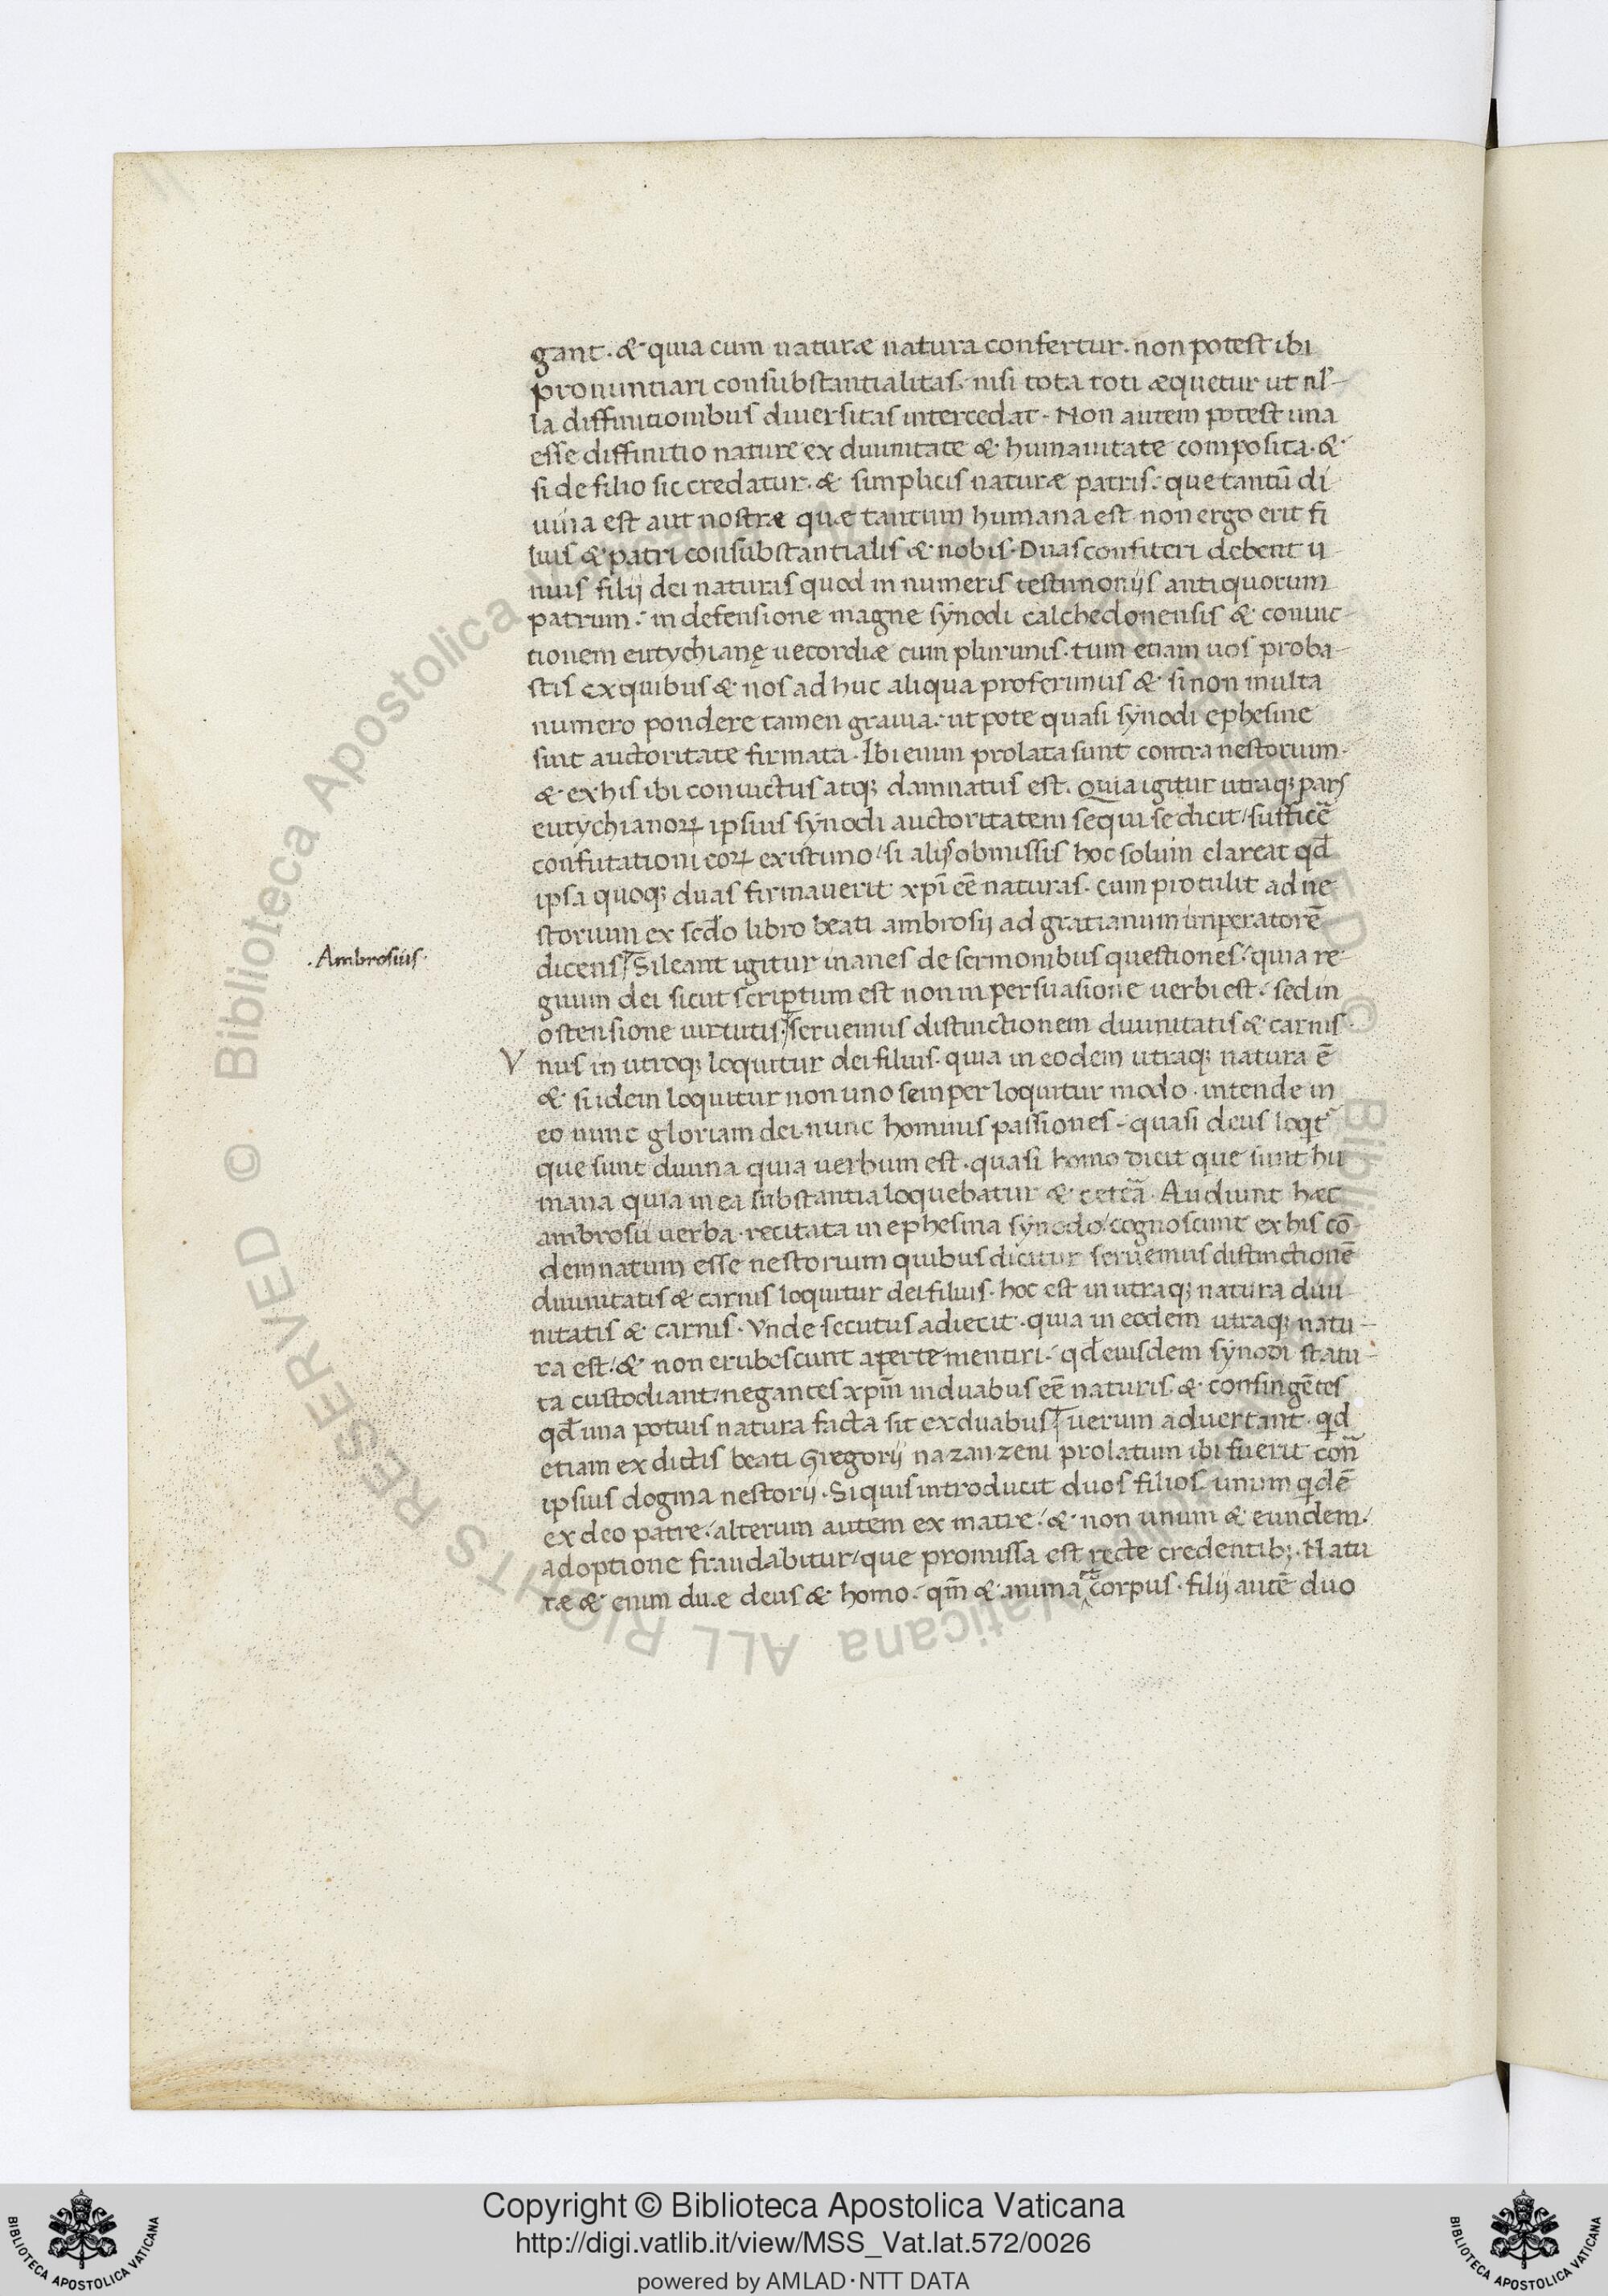 gant. & quia cum naturæ natura confertur. non potest ibi
pronuntiari consubstantialitas. nisi tota toti æquetur ut nł-
la diffinitionibus diversitas intercedat. Non autem potest una
esse diffinitio nature ex divinitate & humanitate composita. &
si de filio sic credatur. & simplicis naturæ patris. que tantū di
uina est aut nostræ quæ tantum humana est non ergo erit fi
lius & patri consubstantialis & nobis. Duas confiteri debent u
nius filij dei naturas quod in numeris testimonijs antiquorum
patrum. in defensione magne synodi calchedonensis & conuic-
tionem eutychianę uecordiæ cum plurimis. tum etiam uos proba-
stis ex quibus & nos ad huc aliqua proferimus & si non multa
numero pondere tamen grauia. ut pote quasi synodi ephesine
sint auctoritate firmata. Ibi enim prolata sunt contra nestorium.
& ex his ibi conuictus atq; damnatus est. Quia igitur utraq; pars
eutychianoꝝ ipsius synodi auctoritatem sequi se dicit/ sufficē
confutationi eoꝝ existimo/ si alijs obmissis hoc solum clareat qđ
ipsa quoq; duas firmauerit xpī eē naturas. cum protulit ad ne
storium ex scđo libro beati ambrosij ad gratianum imperatorē
.Ambrosius.
dicens/ Sileant igitur inanes de sermonibus questiones. quia re
gnum dei sicut scriptum est non in persuasione uerbi est. sed in
ostensione uirtutis./ seruemus distinctionem diuinitatis & carnis.
V nus in utroq; loquitur dei filius. quia in eodem utraq; natura ē
& si idem loquitur non uno semper loquitur modo. intende in
eo nunc gloriam dei. nunc hominis passiones. quasi deus loqt͛
que sunt diuina quia uerbum est. quasi homo dicit que sunt hu
mana quia in ea substantia loquebatur & cetēa. Audiunt hæc
ambrosii uerba. recitata in ephesina synodo/ cognoscunt ex his cō-
demnatum esse nestorium quibus dicitur seruemus distinctionē
diuinitatis & carnis loquitur dei filius. hoc est in utraq; natura diui
nitatis & carnis. Vnde secutus adiecit. quia in eodem utraq; natu-
ra est. & non erubescunt aperte mentiri. qđ eiusdem synodi statu-
ta custodiant. negantes xpm̄ in duabus eē naturis. & confingētes
qđ una potius natura facta sit ex duabus/ uerum aduertant. qđ
etiam ex dictis beati Gregorij nazanzeni prolatum ibi fuerit con̄
ipsius dogma nestorij. Si quis introducit duos filios. unum qdē
ex deo patre. alterum autem ex matre. & non unum & eundem.
adoptione fraudabitur/ que promissa est recte credentib;. Natu
ræ & enim duæ deus & homo. qm̄ & anima & corpus. filij autē duo
Copyright © Biblioteca Apostolica Vaticana
http://digi.vatlib.it/view/MSS_Vat.lat.572/0026
powered by AMLAD·NTT DATA
BIBLIOTECA APOSTOLICA VATICANA
BIBLIOTECA APOSTOLICA VATICANA
© Biblioteca Apostolica Vaticana ALL RIGHTS RESERVED